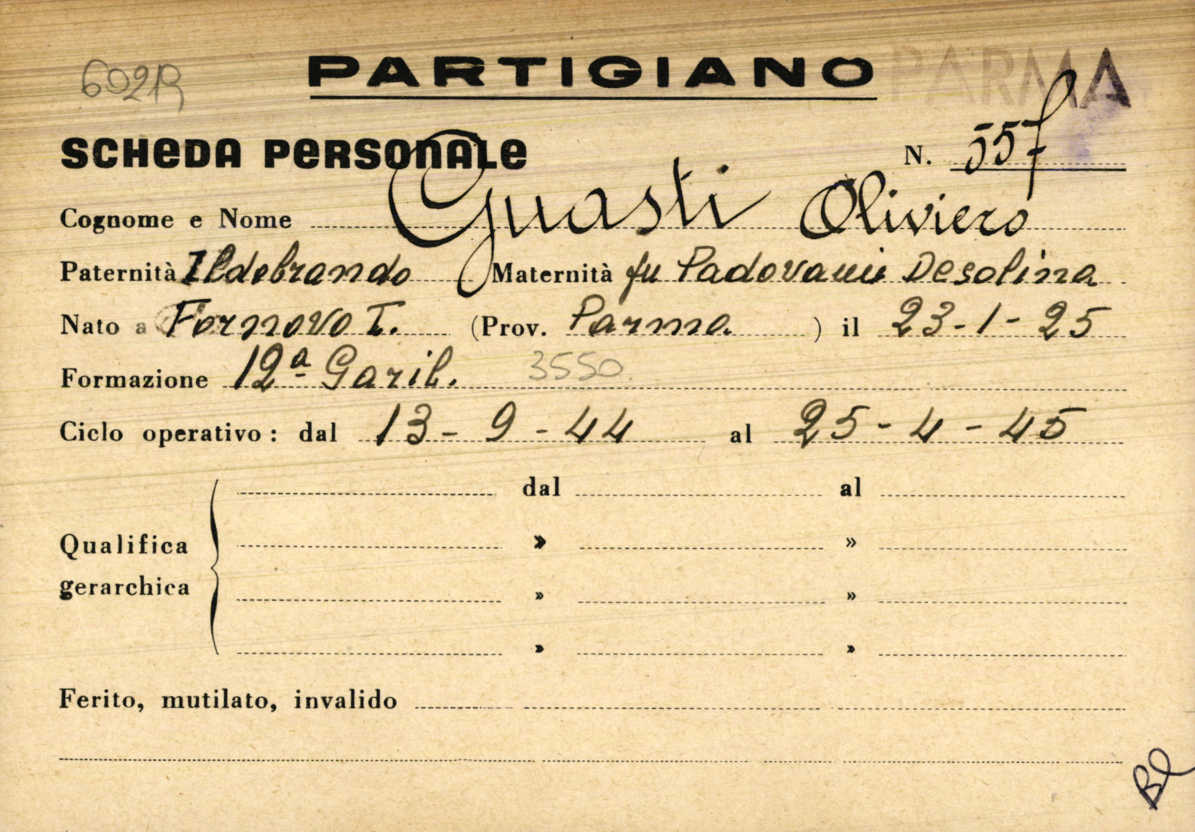 602R PARTIGIANO PARMA
SCHEDA PERSONALE N. 557
Cognome e Nome Guasti Oliviero
Paternità Ildebrando Maternità fu Padovani Desolina
Nato a Fornovo T. (Prov. Parma ) il 23-1-25
Formazione 12ª Garib. 3550
Ciclo operativo: dal 13-9-44 al 25-4-45
dal al
Qualifica » »
gerarchica » »
» »
Ferito, mutilato, invalido